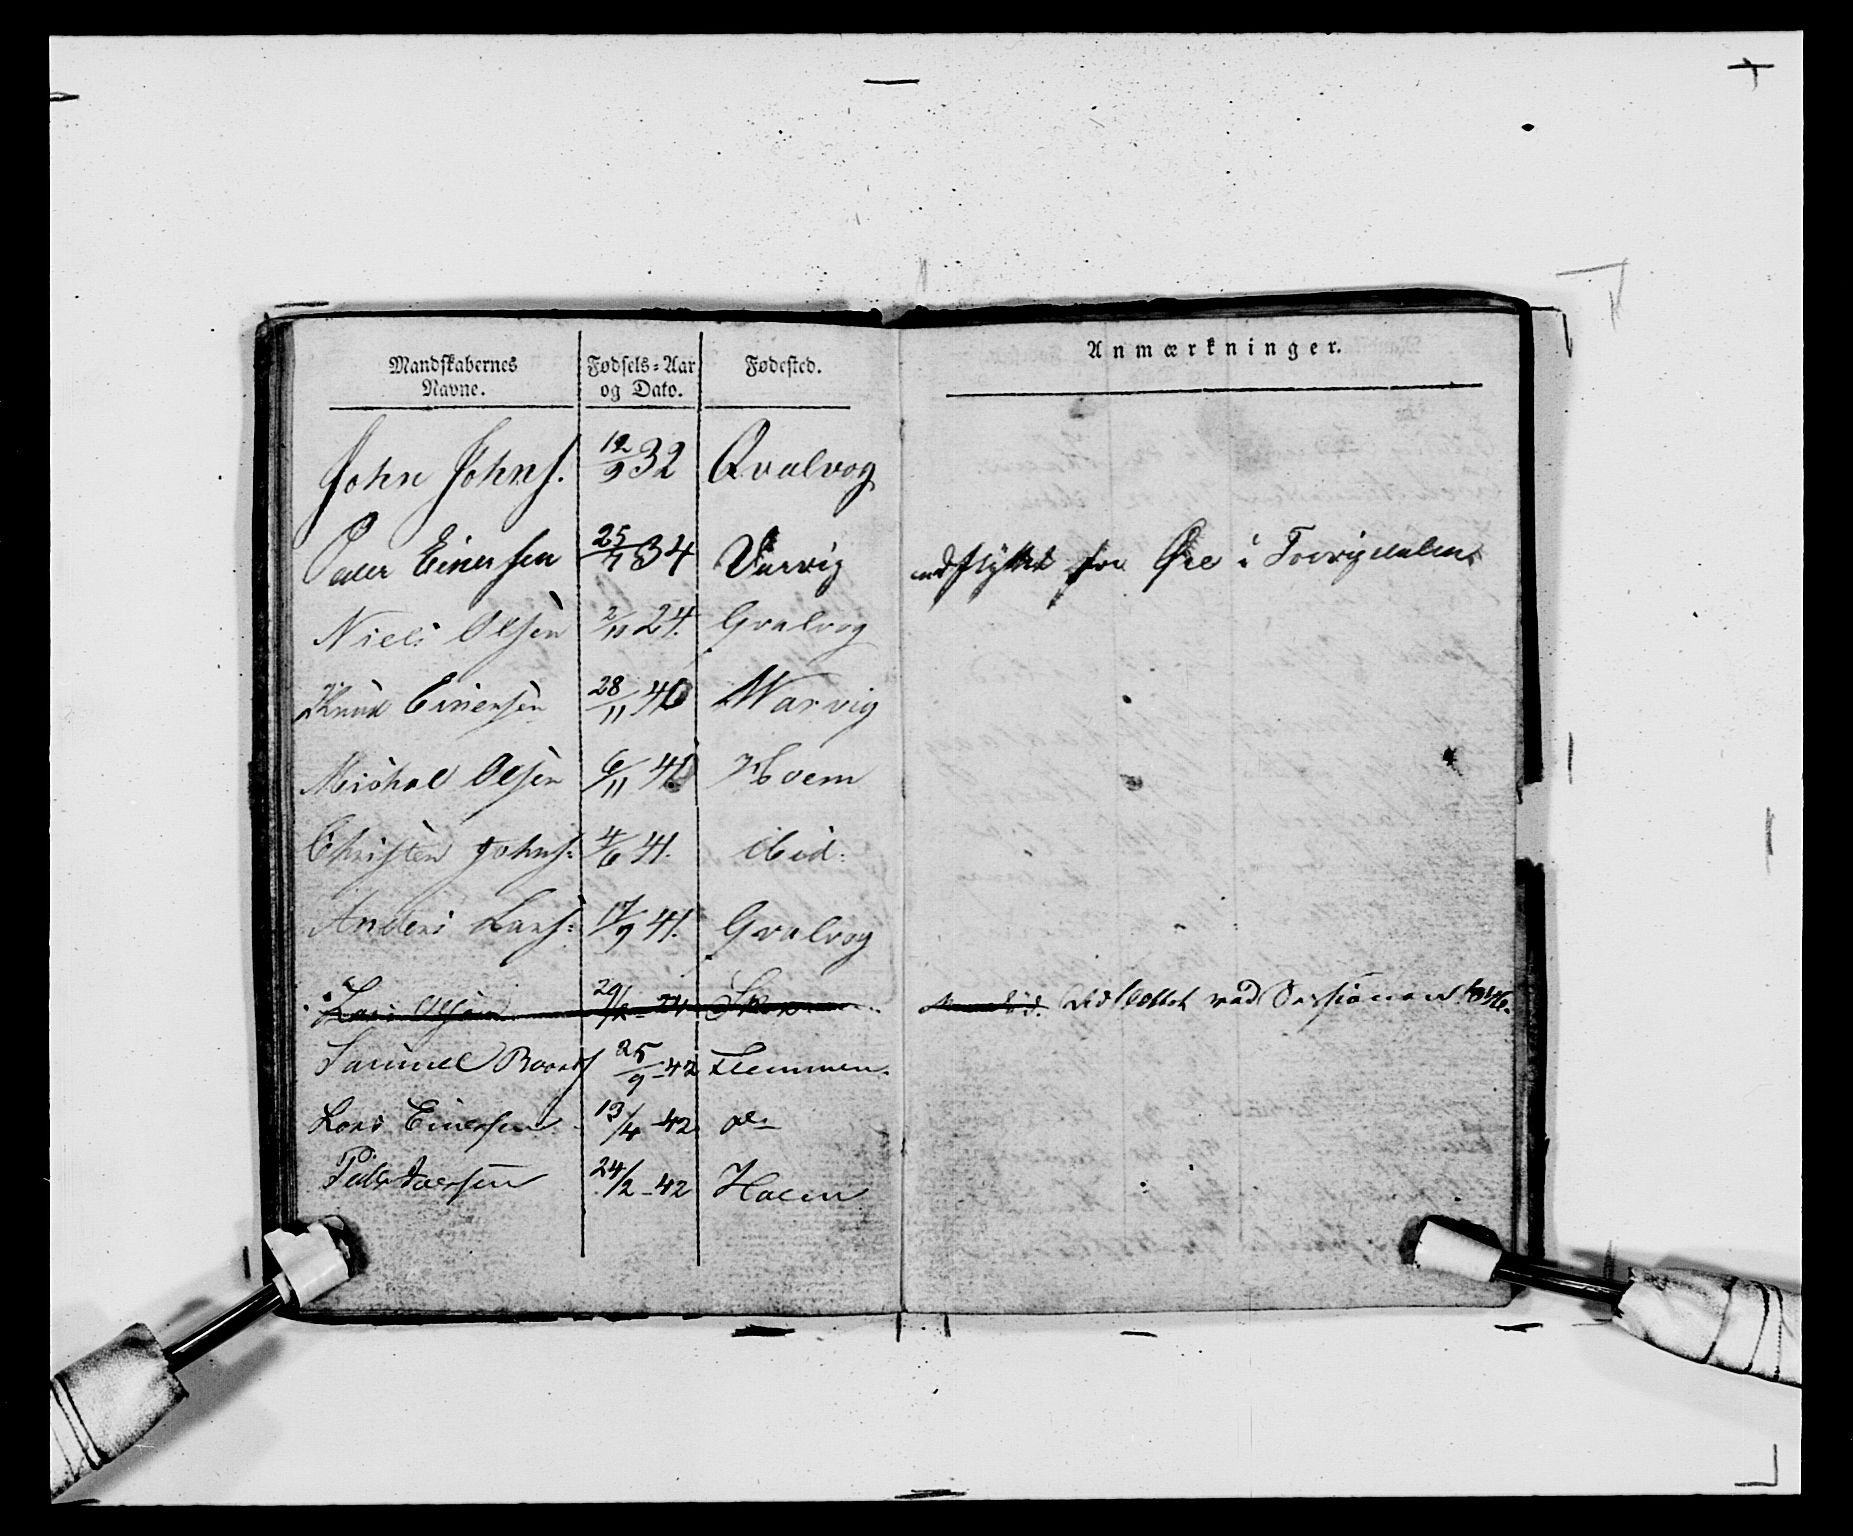 Mandskabernes Navne. Fødsels-Aar og Dato. Fødested. Anmærkninger.
John Johns. 12/9 32 Qvalvog
Peder Einersen 25/7 34 Varvig udflyttet fra Øre i
Niels Olsen 2/11 24. Qvalvog
Knud Einersen 28/11 40 Warvig
Michal Olsen 6/11 40 Hoem
Christen Johns: 4/6 41. ibid:
Anders Lars: 17/9 41. Qvalvog
Lars Olsen 29/ 24 Udslettet ved Sessionen 1846.
Samuel 25/9-42 Flemmen.
Lars Einersen 13/4-42 do
Peder Iversen 24/2-42 Hoem